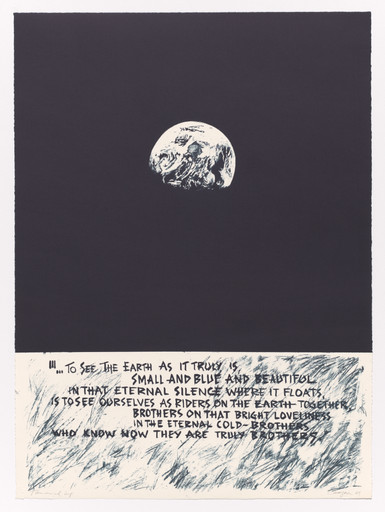 "... TO SEE THE EARTH AS IT TRULY IS
SMALL AND BLUE AND BEAUTIFUL
IN THAT ETERNAL SILENCE WHERE IT FLOATS,
IS TO SEE OURSELVES AS RIDERS ON THE EARTH TOGETHER,
BROTHERS ON THAT BRIGHT LOVELINESS
IN THE ETERNAL COLD - BROTHERS
WHO KNOW NOW THEY ARE TRULY BROTHERS."